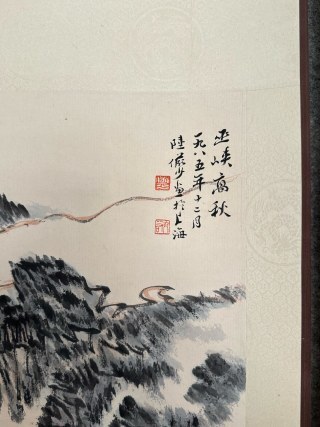 巫峡高秋
一九八五年十二月
陸儼少画於上海